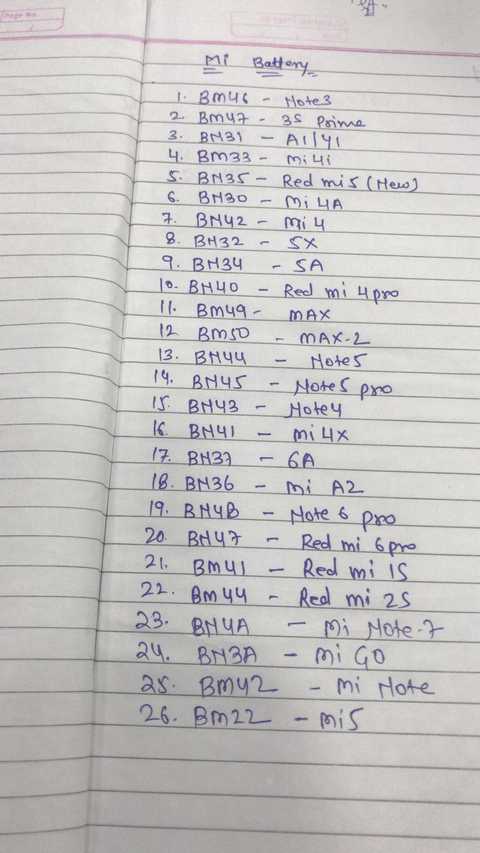 Page No.
Mi Battery
1. BM46 - Note3
2. BM47 - 3S Prime
3. BN31 - A1/Y1
4. BM33 - Mi4i
5. BN35 - Red mi5 (New)
6. BN30 - Mi 4A
7. BN42 - Mi 4
8. BN32 - 5X
9. BN34 - 5A
10. BN40 - Red mi 4pro
11. BM49 - MAX
12. BM50 - MAX-2
13. BN44 - Note5
14. BN45 - Note5 pro
15. BN43 - Note4
16. BN41 - Mi4X
17. BN37 - 6A
18. BN36 - Mi A2
19. BN4B - Note 6 pro
20. BN47 - Red mi 6pro
21. BM41 - Red mi 1S
22. BM44 - Red mi 2S
23. BN4A - Mi Note-7
24. BN3A - Mi GO
25. BM42 - Mi Note
26. BM22 - Mi5